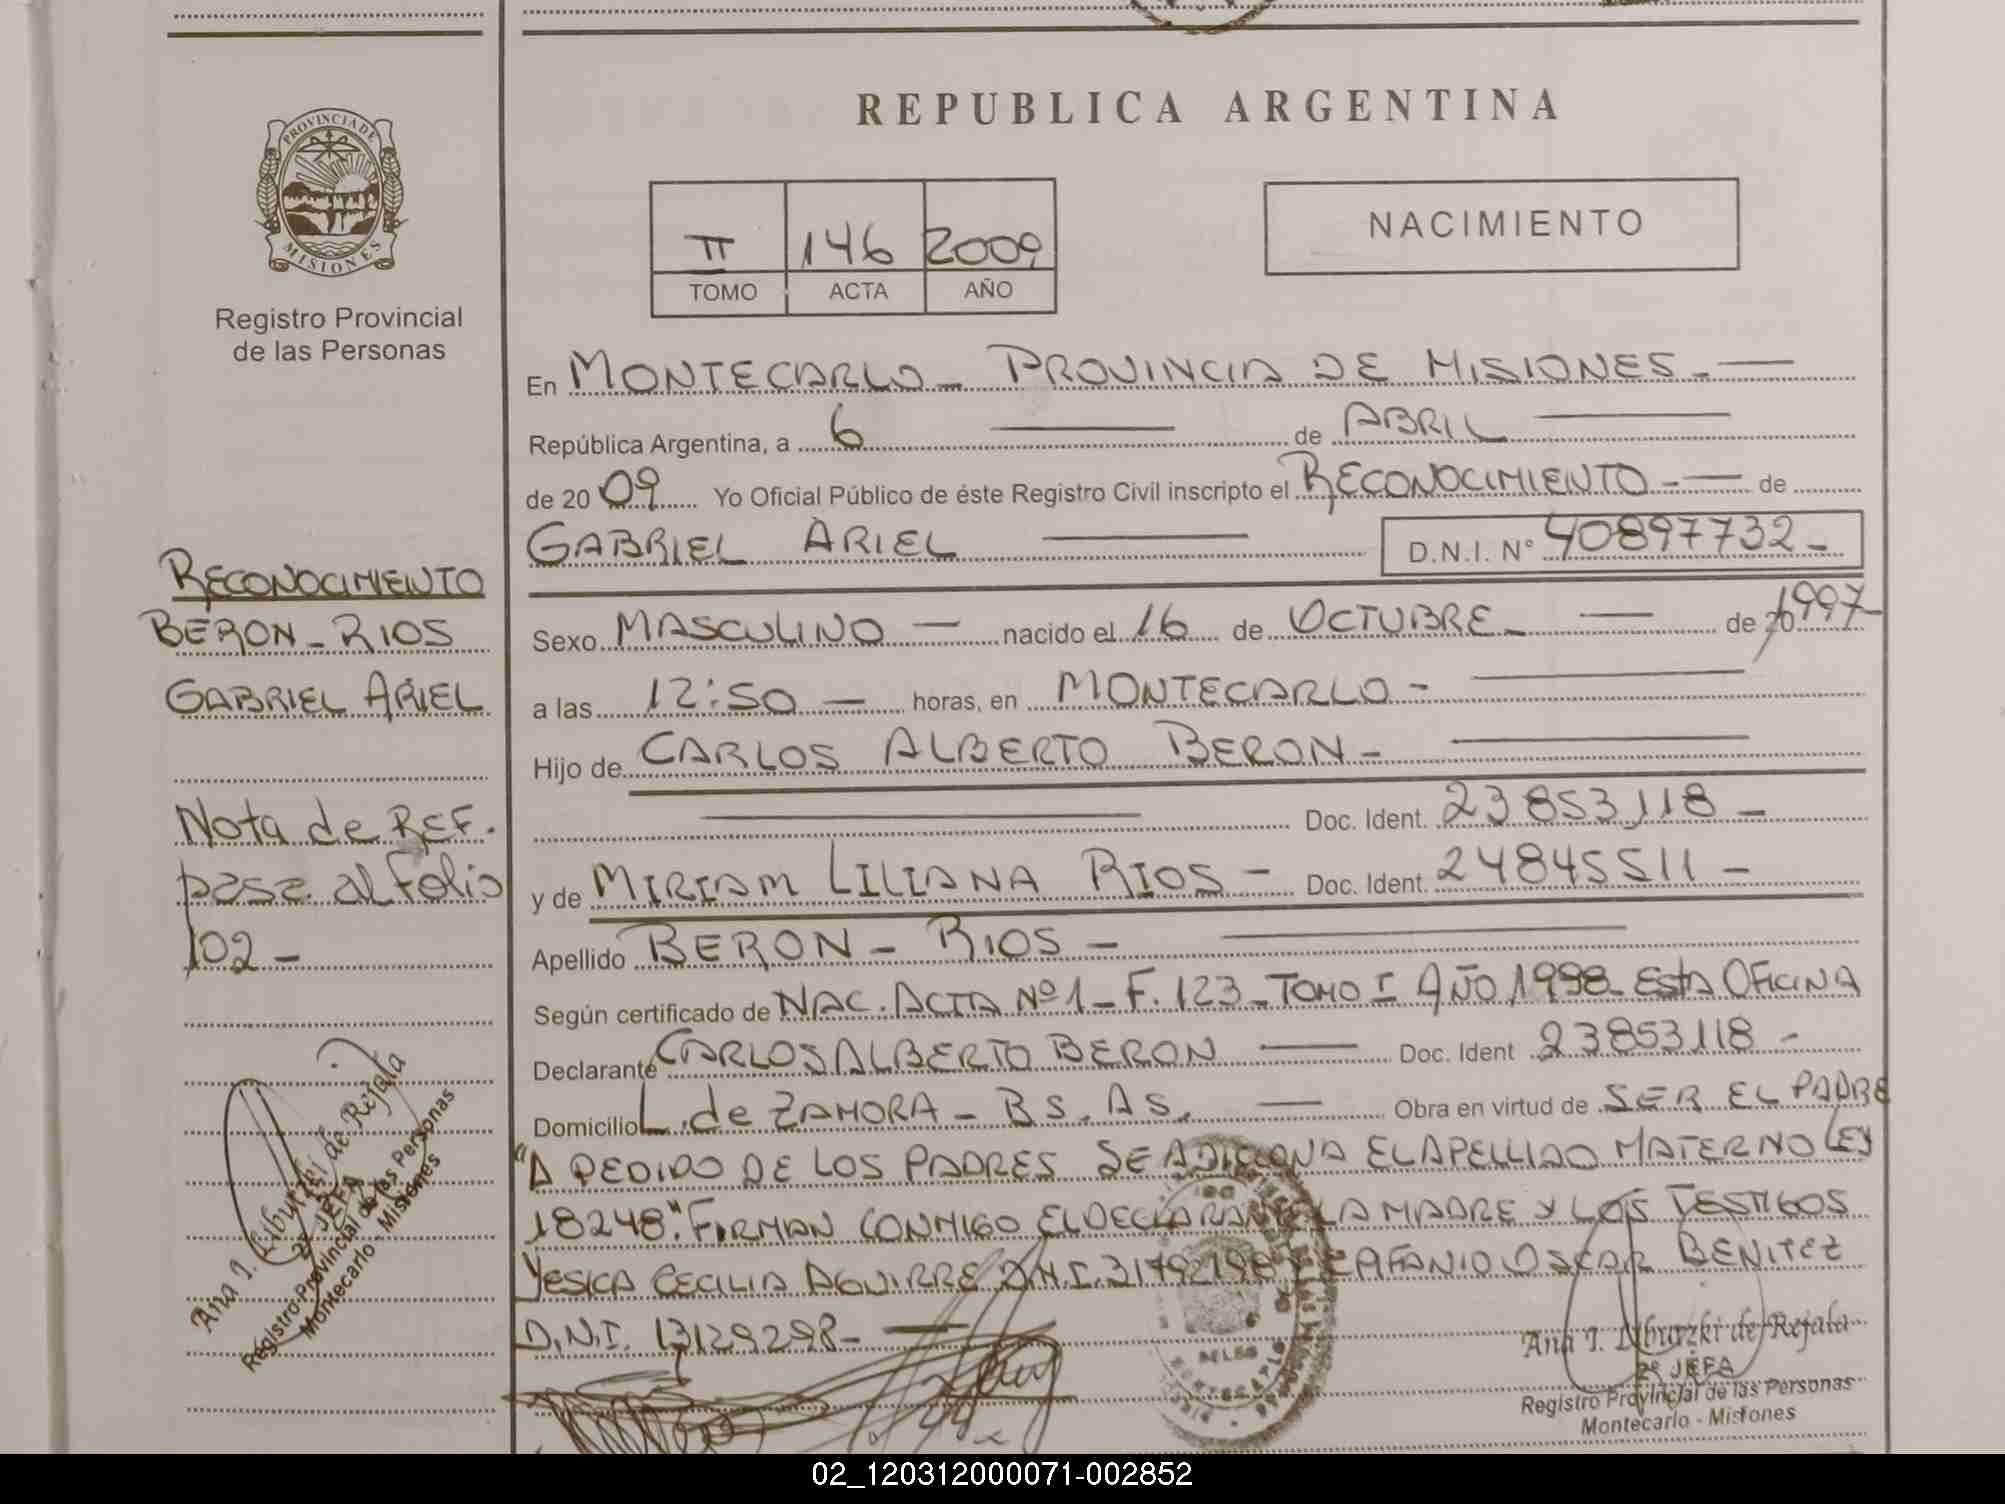 PROVINCIA DE
MISIONES
Registro Provincial
de las Personas
RECONOCIMIENTO
BERON - RIOS
GABRIEL ARIEL
Nota de REF.
pasa al Folio
102 -
Ana I. Liburzki de Rejala
2º JEFA
Registro Provincial de las Personas
Montecarlo - Misiones
REPUBLICA ARGENTINA
II 146 2009
TOMO ACTA AÑO
NACIMIENTO
En MONTECARLO - PROVINCIA DE MISIONES -
República Argentina, a 6 de ABRIL
de 2009 Yo Oficial Público de éste Registro Civil inscripto el RECONOCIMIENTO - de
GABRIEL ARIEL D.N.I. Nº 40897732 -
Sexo MASCULINO - nacido el 16 de OCTUBRE - de 1997 -
a las 12:50 - horas, en MONTECARLO -
Hijo de CARLOS ALBERTO BERON -
Doc. Ident. 23853118 -
y de MIRIAM LILIANA RIOS - Doc. Ident. 24845511 -
Apellido BERON - RIOS -
Según certificado de NAC. ACTA Nº 1 - F. 123 - TOMO I AÑO 1998 - ESTA OFICINA
Declarante CARLOS ALBERTO BERON Doc. Ident 23853118 -
Domicilio L. de ZAMORA - BS. AS. Obra en virtud de SER EL PADRE
"A PEDIDO DE LOS PADRES SE ADICIONA EL APELLIDO MATERNO LEY
18248". FIRMAN CONMIGO EL DECLARANTE LA MADRE Y LOS TESTIGOS
YESICA CECILIA AGUIRRE D.N.I. OSCAR BENITEZ
D.N.I. 13129298 -
Ana I. Liburzki de Rejala
2º JEFA
Registro Provincial de las Personas
Montecarlo - Misiones
02_120312000071-002852